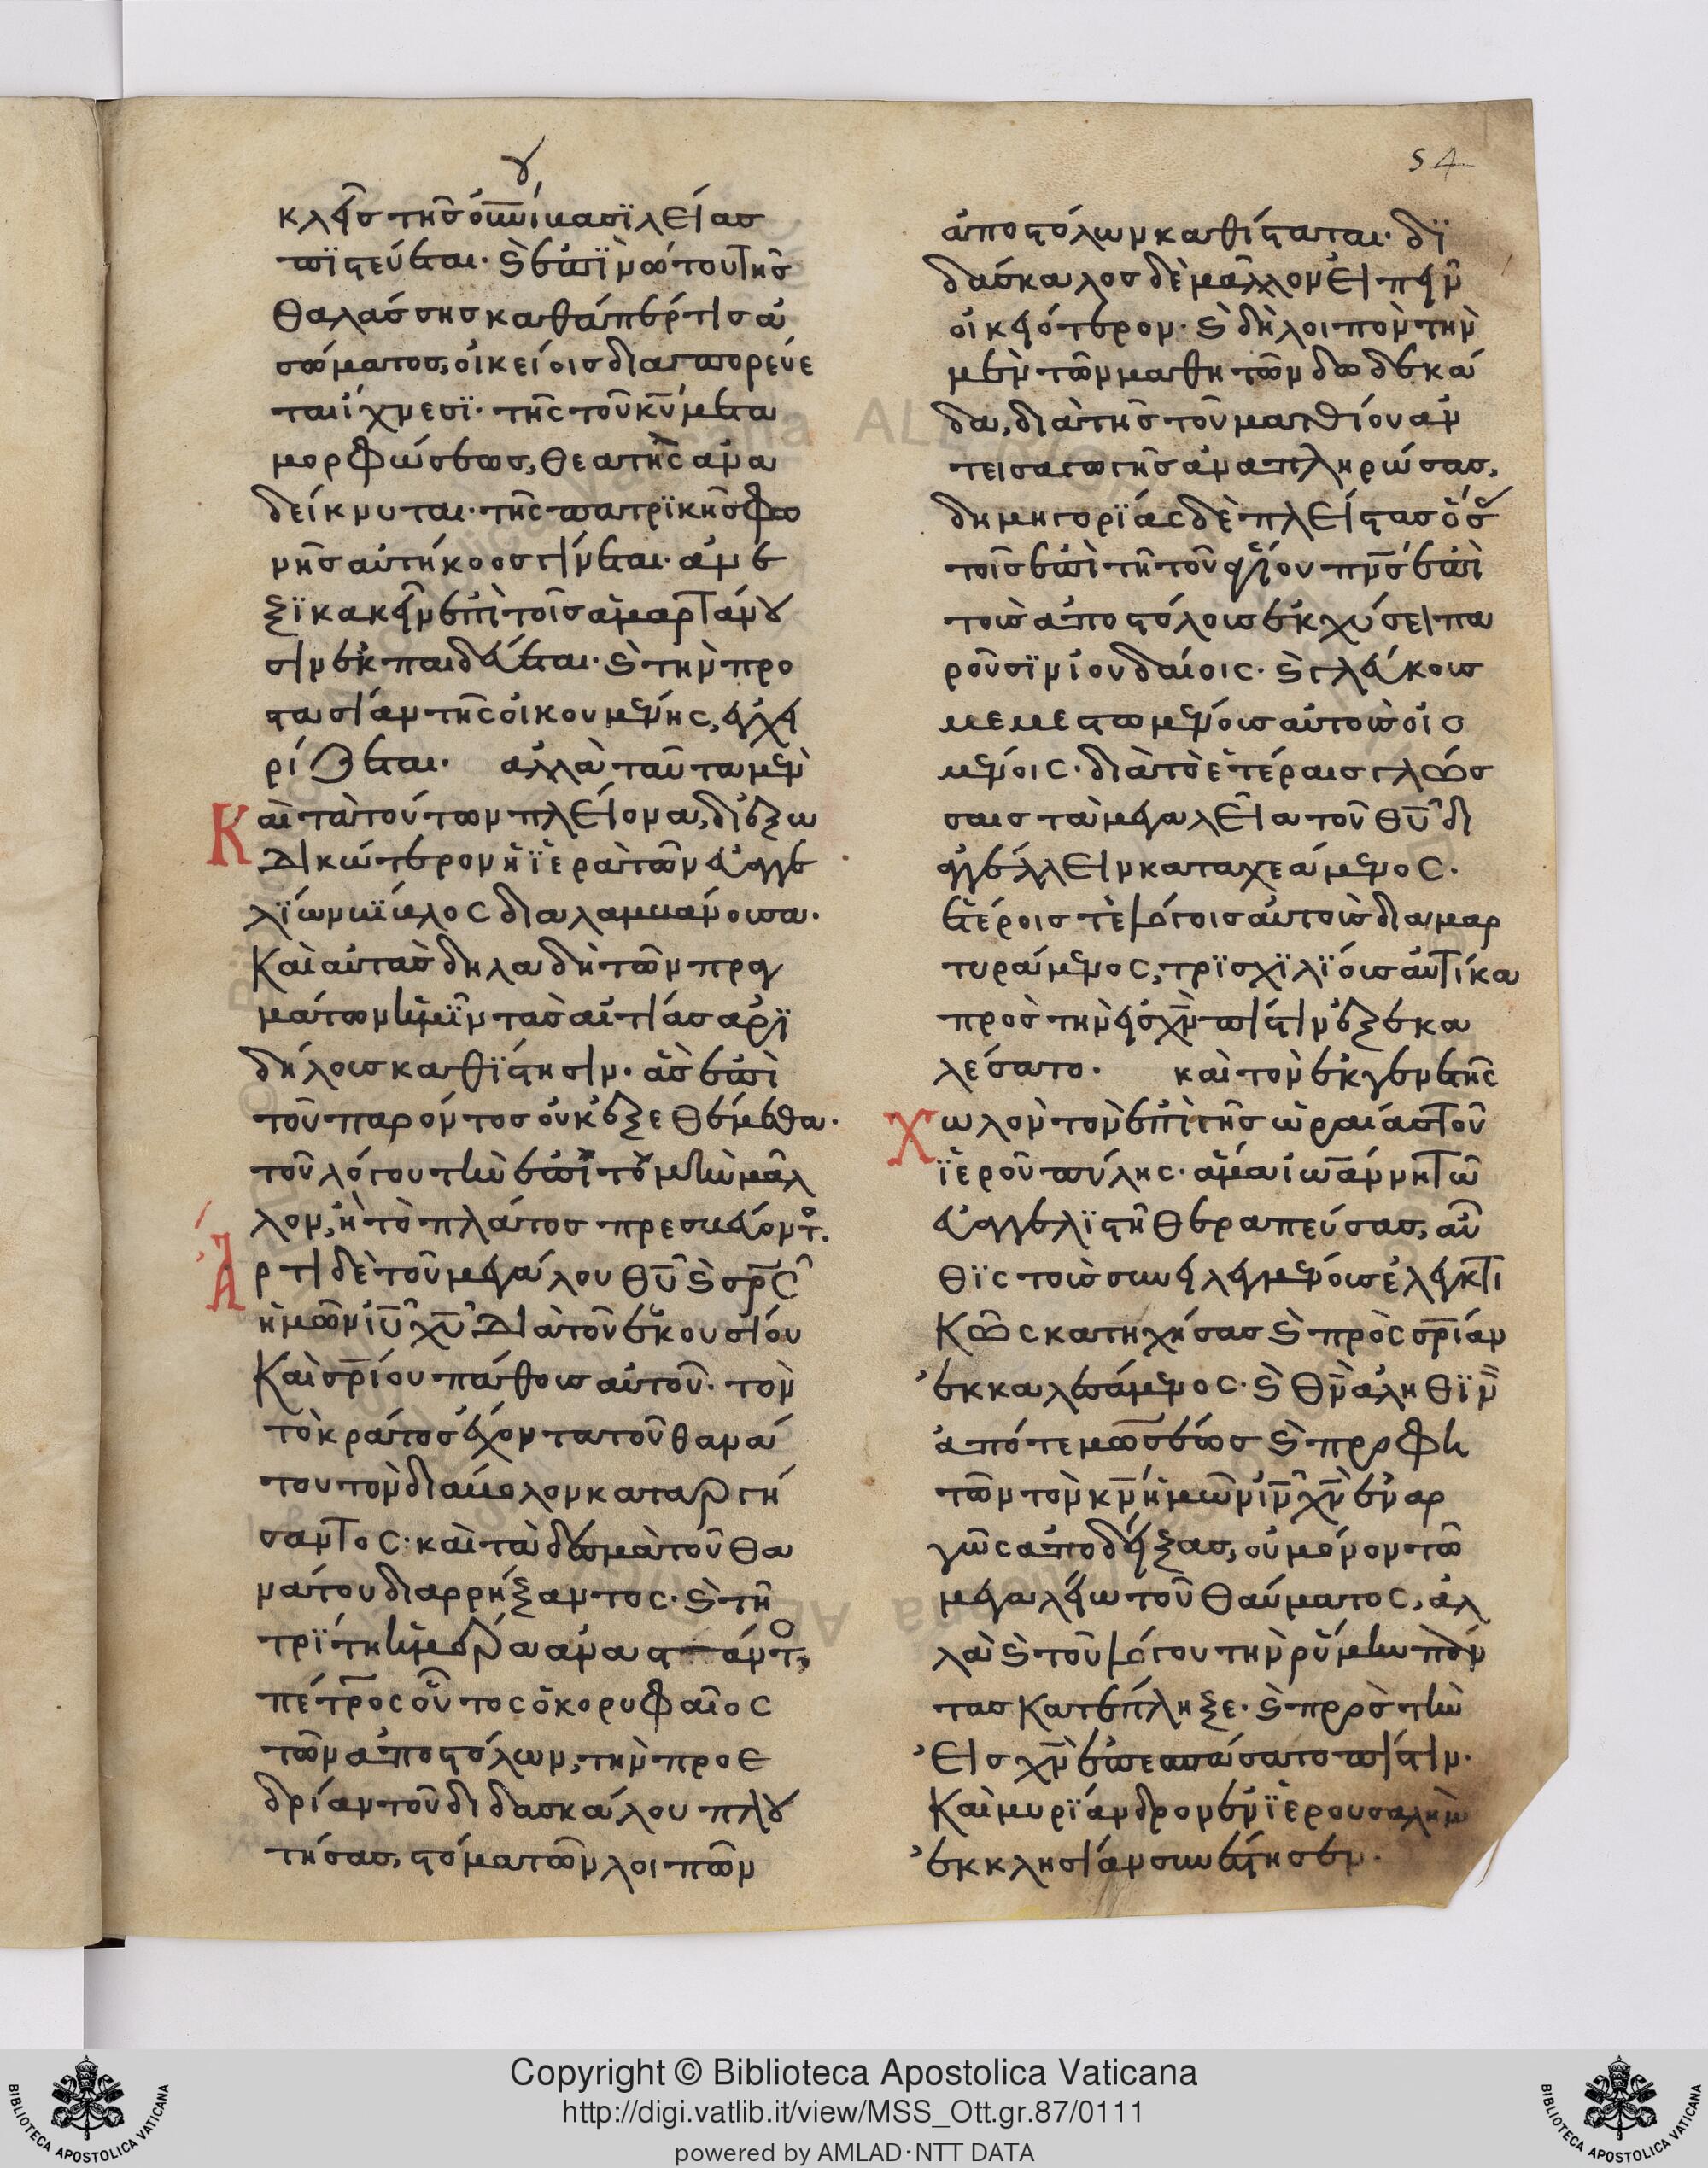 γ
54
κλεῖς τῆς οὐνίου βασϊλείας
πϊστεύεται· καὶ ἐπϊ νώτου τῆς
θαλάσσης καθάπερ τις ἀ
σώματος, οἰκείοις διαπορεύε
ται ἴχνεσϊ· τῆς τοῦ κῡ μετα
μορφώσεως, θεατὴς ἀνα
δείκνυται· τῆς πατρϊκῆς φω
νῆς αὐτήκοος γίνεται· ἀνε
ξϊκακεῖν ἐπὶ τοῖς ἁμαρτάνου
σιν ἐκπαιδεύεται· καὶ τὴν προ
στασίαν τῆς οἰκουμένης, ἐγχει
ρίζεται· ἀλλὰ ταῦτα μὲν
Καὶ τὰ τούτων πλείονα, διεξω
δικώτερον ἡ ϊερὰ τῶν εὐαγγε
λϊων βϊβλος διαλαμβάνουσα·
Καὶ αὐτὰς δηλαδὴ τῶν πραγ
μάτων ἡμῖν τὰς αἰτίας ἀρϊ
δήλους καθϊστησιν· ἃς ἐπὶ
τοῦ παρόντος οὐκ ἐξεθέμεθα·
τοῦ λόγου τὴν ἐπίτομὴν μᾶλ
λον, ἢ τὸ πλάτος πρεσβεύοντος.
Ἄρτι δὲ τοῦ μεγάλου θῡ καὶ σρ̄ς
ἡμῶν ῑῡ χῡ διὰ τοῦ ἑκουσίου
Καὶ σρ̄ίου πάθους αὐτοῦ· τὸν
τὸ κράτος ἔχοντα τοῦ θανά
του τὸν διάβολον καταργή
σαντος· καὶ τὰ δεσμὰ τοῦ θα
νάτου διαρρήξαντος· καὶ τῇ
τρϊτη ἡμέρα ἀναστάντος,
πέτρος οὗτος ὁ κορυφαῖος
τῶν ἀποστόλων, τὴν προε
δρίαν τοῦ διδασκάλου πλου
τήσας, στόμα τῶν λοιπῶν
ἀποστόλων καθίσταται· δϊ
δάσκαλος δὲ μᾶλλον εἰπεῖν
οἰκειότερον· καὶ δὴ λοιπὸν τὴν
μὲν τῶν μαθητῶν δωδεκά
δα, διὰ τῆς τοῦ ματθίου ἀν
τεισαγωγῆς ἀναπληρώσας,
δημηγορϊας δὲ πλείστας ὅσας
τοῖς ἐπὶ τῇ τοῦ ἁγίου πν̄ς ἐπὶ
τοὺς ἀποστόλους ἐκχύσει πα
ροῦσϊν ἰουδαίοις· καὶ γλεύκους
μεμεστωμένους αὐτοὺς οἰο
μένοις· διὰ τὸ ἑτέραις γλώσ
σαις τὰ μεγαλεῖα τοῦ θῡ δι
αγγέλλειν καταχεάμενος·
ἑτέροις τὲ λόγοις αὐτοὺς διαμαρ
τυράμενος, τρϊσχϊλϊους αὐτίκα
πρὸς τὴν εἰς χν̄ πίστιν ἐξεκα
λέσατο· καὶ τὸν ἐκ γενετῆς
Χωλὸν τὸν ἐπὶ τῆς ὡραίας τοῦ
ϊεροῦ πύλης· ἅμα ἰωάννη τῶ
εὐαγγελϊστῆ θεραπεύσας, αὖ
θϊς τοὺς συνειλεγμένους ἐλεγκτι
Κῶς κατηχήσας καὶ πρὸς σρ̄ίαν
ἐκκαλεσάμενος· καὶ θν̄ ἀληθϊν̄
ἀπό τε μωσέως καὶ προφη
τῶν τὸν κν̄ ἡμῶν ῑν̄ χν̄ ἐναρ
γῶς ἀποδείξας, οὐ μόνον τῶ
μεγαλείω τοῦ θαύματος, ἀλ
λὰ καὶ τοῦ λόγου τῆ ῥύμη πάν
τας Κατέπληξε· καὶ πρὸς τὴν
Εἰς χν̄ ἐπεσπάσατο πίστιν·
Καὶ μυρϊανδρον ἐν ϊερουσαλὴμ
ἐκκλησίαν συνέστησεν·
Copyright © Biblioteca Apostolica Vaticana
http://digi.vatlib.it/view/MSS_Ott.gr.87/0111
powered by AMLAD·NTT DATA
BIBLIOTECA APOSTOLICA VATICANA
BIBLIOTECA APOSTOLICA VATICANA